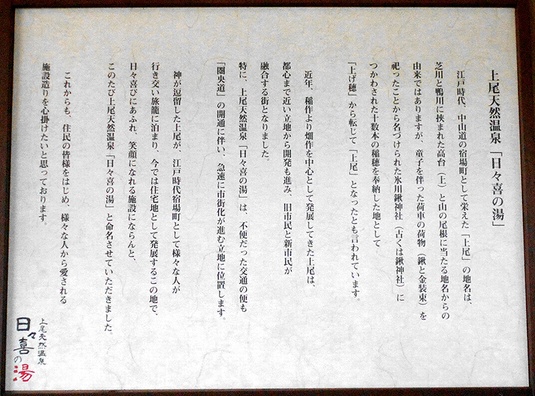 上尾天然温泉「日々喜の湯」
江戸時代、中山道の宿場町として栄えた「上尾」の地名は、
芝川と鴨川に挟まれた高台（上）と山の尾根に当たる地名からの
由来ではありますが、童子を伴った荷車の荷物（鍬と金装束）を
祀ったことから名づけられた氷川鍬神社（古くは鍬神社）に
つかわされた十数本の稲穂を奉納した地として
「上げ穂」から転じて「上尾」となったとも言われています。
近年、稲作より畑作を中心として発展してきた上尾は、
都心まで近い立地から開発も進み、旧市民と新市民が
融合する街となりました。
特に、上尾天然温泉「日々喜の湯」は、不便だった交通の便も
「圏央道」の開通に伴い、急速に市街化が進む立地に位置します。
神が逗留した上尾が、江戸時代宿場町として様々な人が
行き交い旅籠に泊まり、今では住宅地として発展するこの地で、
日々喜びにあふれ、笑顔になれる施設にならんと、
このたび上尾天然温泉「日々喜の湯」と命名させていただきました。
これからも、住民の皆様をはじめ、様々な人から愛される
施設造りを心掛けたいと思っております。
上尾天然温泉
日々喜の湯